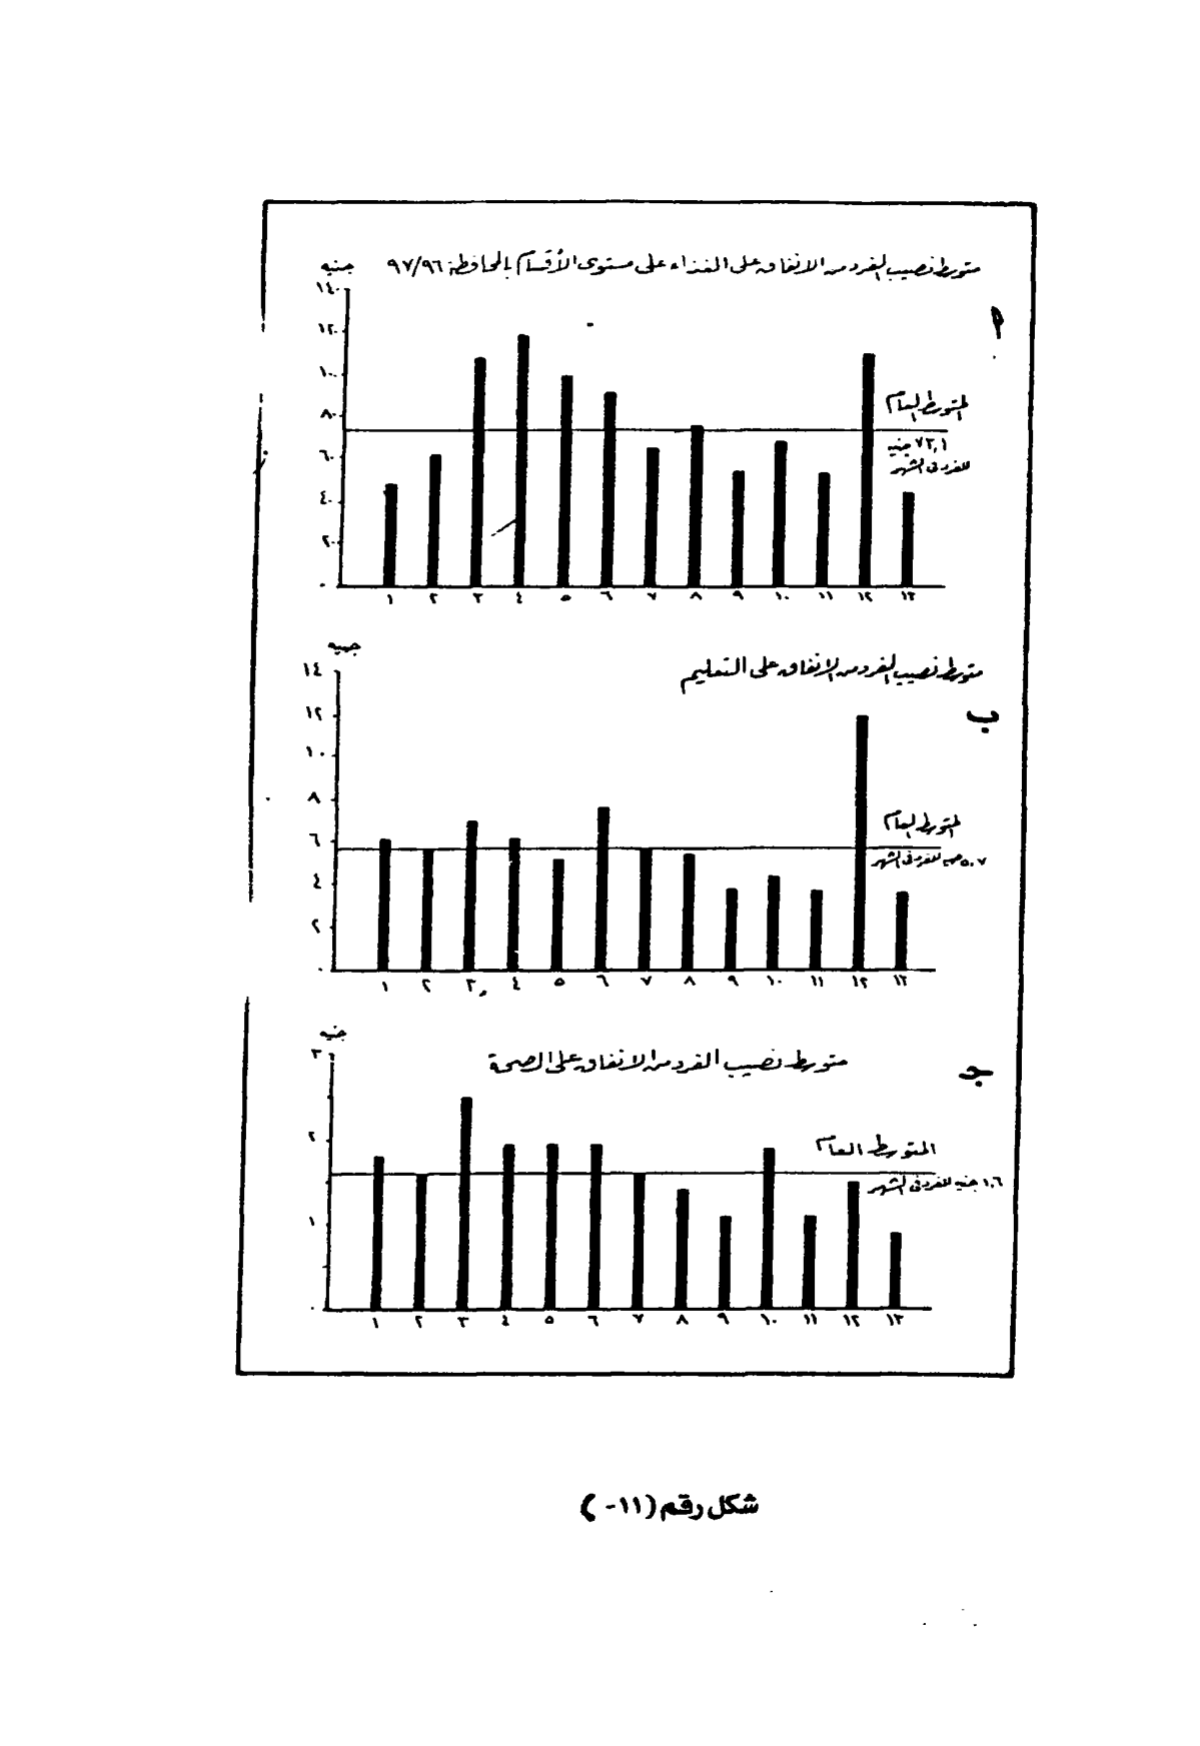 متوسط نصيب الفرد من الانفاق على الغذاء على مستوى الأقسام بالمحافظة ٩٧/٩٦
جنيه
أ
١٤٠
١٢٠
١٠٠
٨٠
٦٠
٤٠
٢٠
٠
المتوسط العام
٧٣,١ جنيه
للفرد فى الشهر
١ ٢ ٣ ٤ ٥ ٦ ٧ ٨ ٩ ١٠ ١١ ١٢ ١٣
جنيه
متوسط نصيب الفرد من الانفاق على التعليم
ب
١٤
١٢
١٠
٨
٦
٤
٢
٠
المتوسط العام
٥,٧ جنيه للفرد فى الشهر
١ ٢ ٣ ٤ ٥ ٦ ٧ ٨ ٩ ١٠ ١١ ١٢ ١٣
جنيه
متوسط نصيب الفرد من الانفاق على الصحة
جـ
٣
٢
١
٠
المتوسط العام
١,٦ جنيه للفرد فى الشهر
١ ٢ ٣ ٤ ٥ ٦ ٧ ٨ ٩ ١٠ ١١ ١٢ ١٣
شكل رقم (١١- )